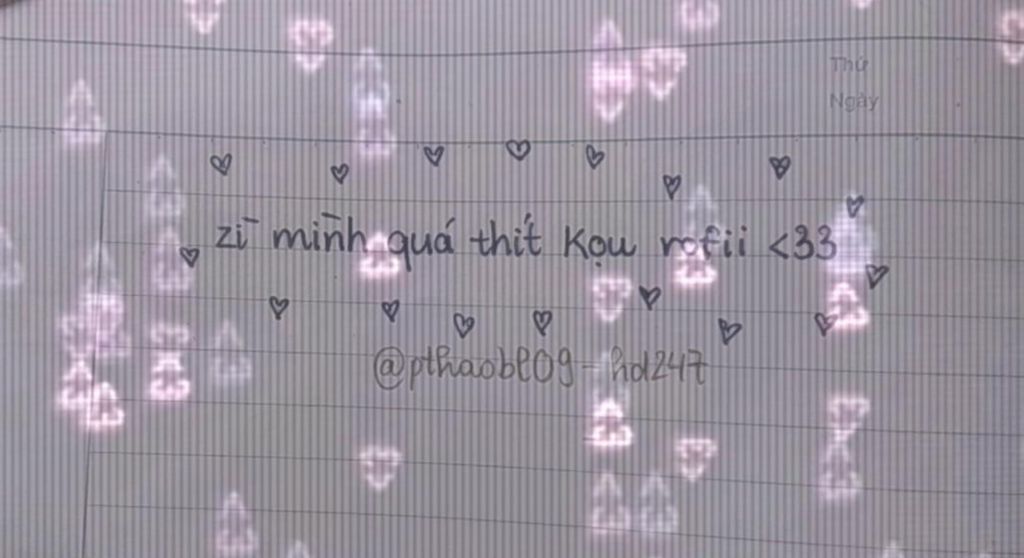 Thứ
Ngày
zī mīnh quá thít kọu rofii <33
@pthaobl09-hd247